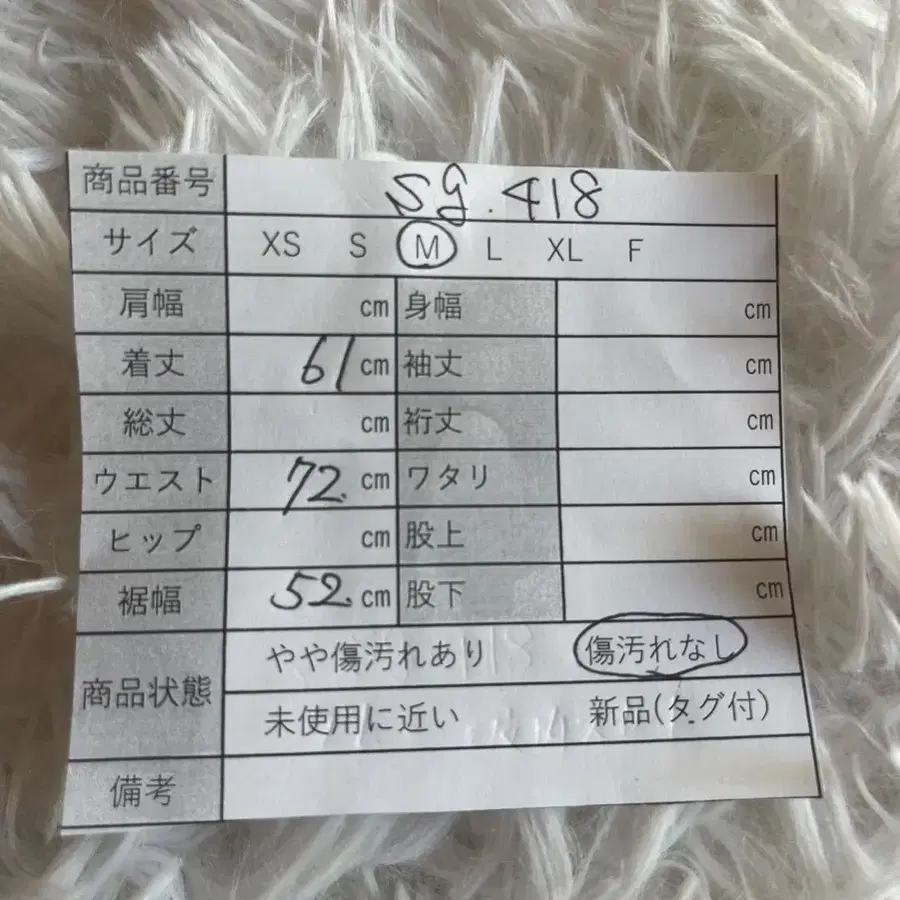 商品番号 sg.418
サイズ XS S M L XL F
肩幅 cm 身幅 cm
着丈 61 cm 袖丈 cm
総丈 cm 裄丈 cm
ウエスト 72 cm ワタリ cm
ヒップ cm 股上 cm
裾幅 52 cm 股下 cm
商品状態 やや傷汚れあり 傷汚れなし
未使用に近い 新品(タグ付)
備考